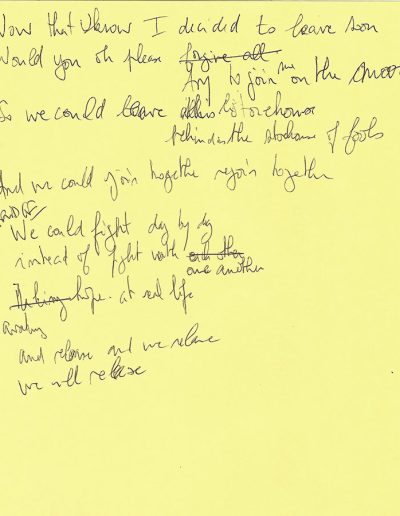 Now that I know I decided to leave soon
Would you oh please forgive all
try to join me on the
So we could leave
behind the storehouse of fools
And we could join together rejoin together
We could fight day by day
instead of fight with each other
one another
hope at real life
and release and we release
we will release